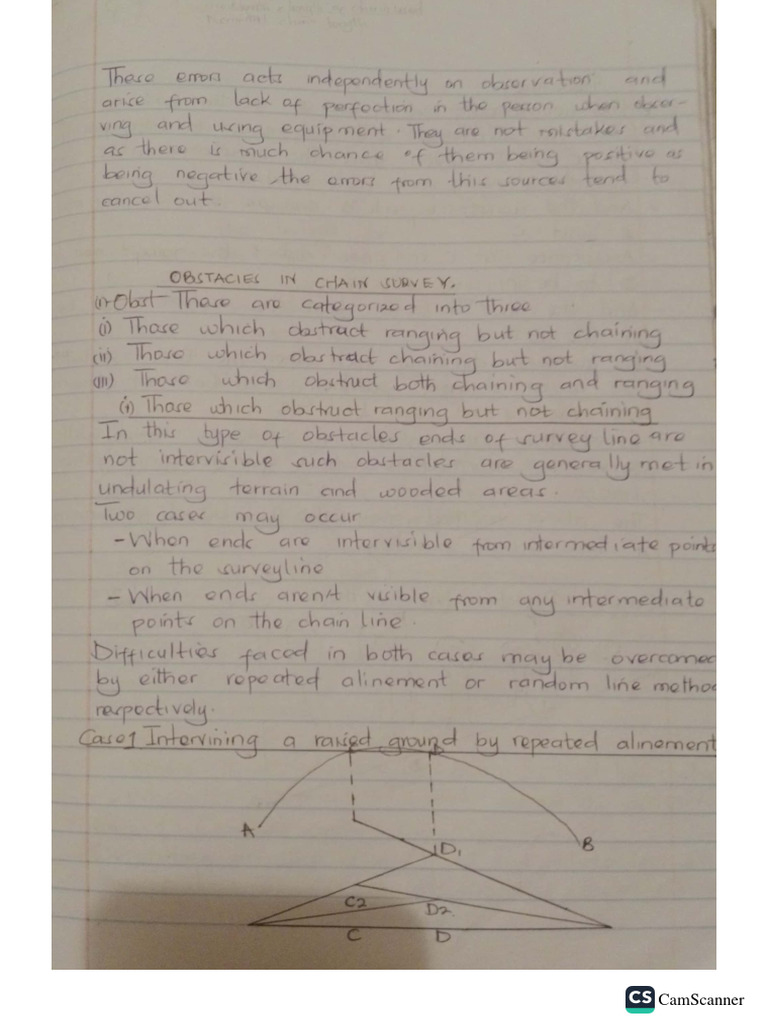 These errors acts independently on observation and
arise from lack of perfection in the person when obser-
ving and using equipment. They are not mistakes and
as there is much chance of them being positive as
being negative, the errors from this sources tend to
cancel out.
OBSTACIES IN CHAIN SURVEY.
(i) Obst These are categorized into three
(i) Those which obstruct ranging but not chaining
(ii) Those which obstruct chaining but not ranging
(iii) Those which obstruct both chaining and ranging
(i) Those which obstruct ranging but not chaining
In this type of obstacles ends of survey line are
not intervisible such obstacles are generally met in
undulating terrain and wooded areas.
Two cases may occur
- When ends are intervisible from intermediate points
on the surveyline
- When ends aren't visible from any intermediate
points on the chain line.
Difficulties faced in both cases may be overcomed
by either repeated alinement or random line method
respectively.
Case1 Intervining a raised ground by repeated alinement
A
B
D1
C2
D2
C
D
CS CamScanner